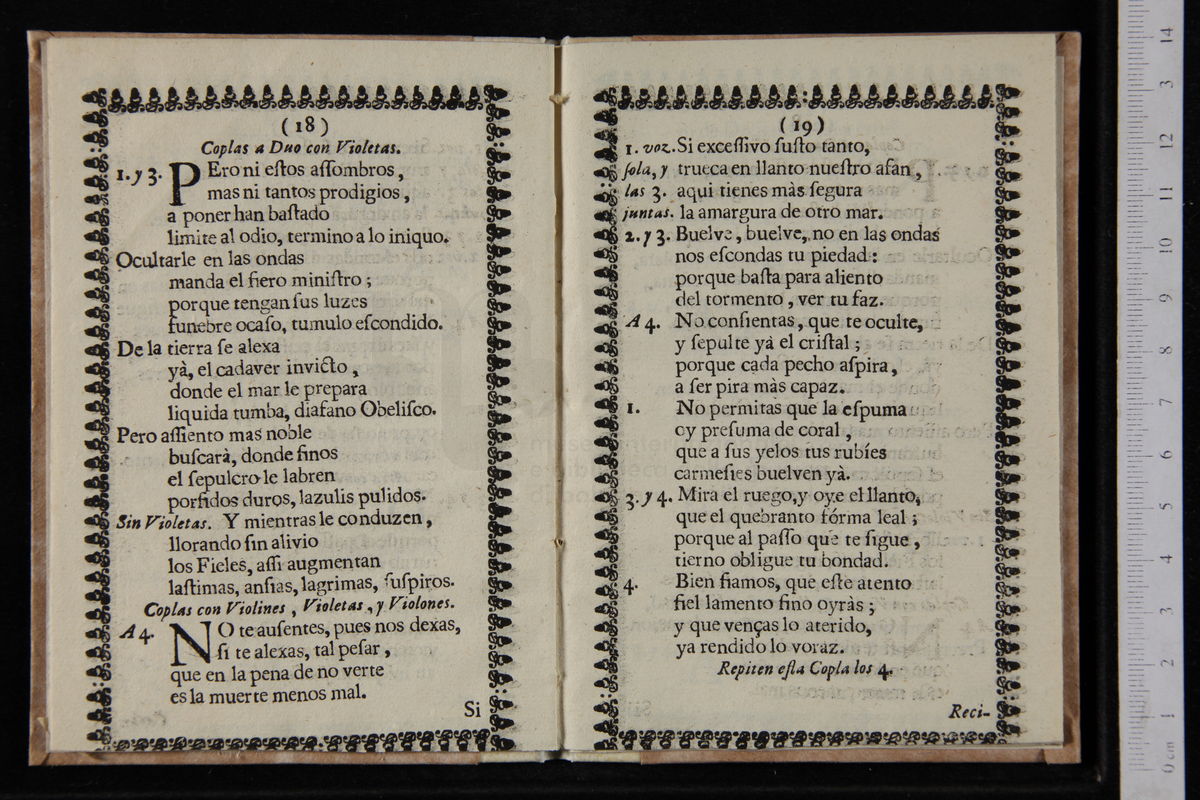 (18)
Coplas a Duo con Violetas.
1. y 3. PEro ni eſtos aſſombros,
mas ni tantos prodigios,
a poner han baſtado
limite al odio, termino a lo iniquo.
Ocultarle en las ondas
manda el fiero miniſtro;
porque tengan ſus luzes
funebre ocaſo, tumulo eſcondido.
De la tierra ſe alexa
yà, el cadaver invicto,
donde el mar le prepara
liquida tumba, diafano Obeliſco.
Pero aſſiento mas noble
buſcarà, donde finos
el ſepulcro le labren
porfidos duros, lazulis pulidos.
Sin Violetas. Y mientras le conduzen,
llorando ſin alivio
los Fieles, aſſi augmentan
laſtimas, anſias, lagrimas, ſuſpiros.
Coplas con Violines, Violetas, y Violones.
A 4. NO te auſentes, pues nos dexas,
ſi te alexas, tal peſar,
que en la pena de no verte
es la muerte menos mal.
Si
(19)
1. voz. Si exceſſivo ſuſto tanto,
ſola, y trueca en llanto nueſtro afàn,
las 3. aqui tienes màs ſegura
juntas. la amargura de otro mar.
2. y 3. Buelve, buelve, no en las ondas
nos eſcondas tu piedad:
porque baſta para aliento
del tormento, ver tu faz.
A 4. No conſientas, que te oculte,
y ſepulte yà el criſtal;
porque cada pecho aſpira,
a ſer pira màs capaz.
1. No permitas que la eſpuma
oy preſuma de coral,
que a ſus yelos tus rubíes
carmeſies buelven yà.
3. y 4. Mira el ruego, y oye el llanto,
que el quebranto fórma leal;
porque al paſſo que te ſigue,
tierno obligue tu bondad.
4. Bien fiamos, que eſte atento
fiel lamento fino oyràs;
y que venças lo aterido,
ya rendido lo voraz.
Repiten eſta Copla los 4.
Reci-
14
13
12
11
10
9
8
7
6
5
4
3
2
1
0 cm